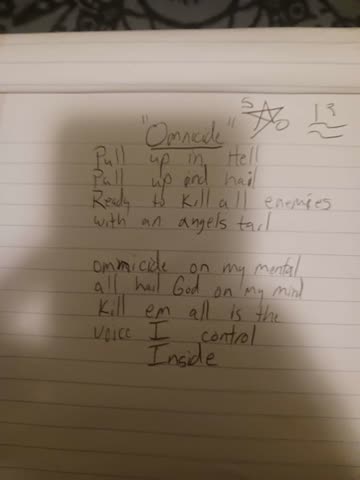 "Omnicide"
S O
Pull up in Hell
Pull up and hail
Ready to kill all enemies
with an angels tail
omnicide on my mental
all hail God on my mind
Kill em all is the
voice I control
Inside